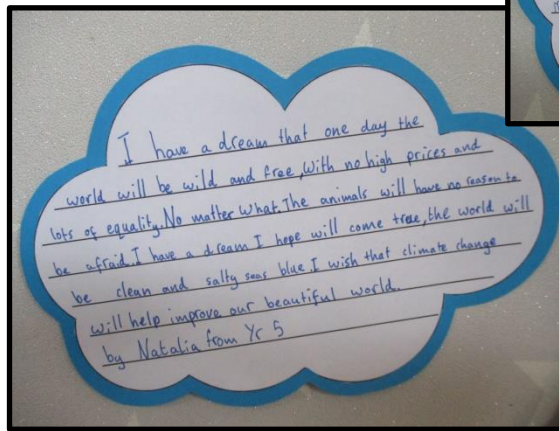 I have a dream that one day the
world will be wild and free, With no high prices and
lots of equality. No matter what. The animals will have no reason to
be afraid. I have a dream I hope will come true, the world will
be clean and salty seas blue. I wish that climate change
will help improve our beautiful world.
by Natalia from Yr 5